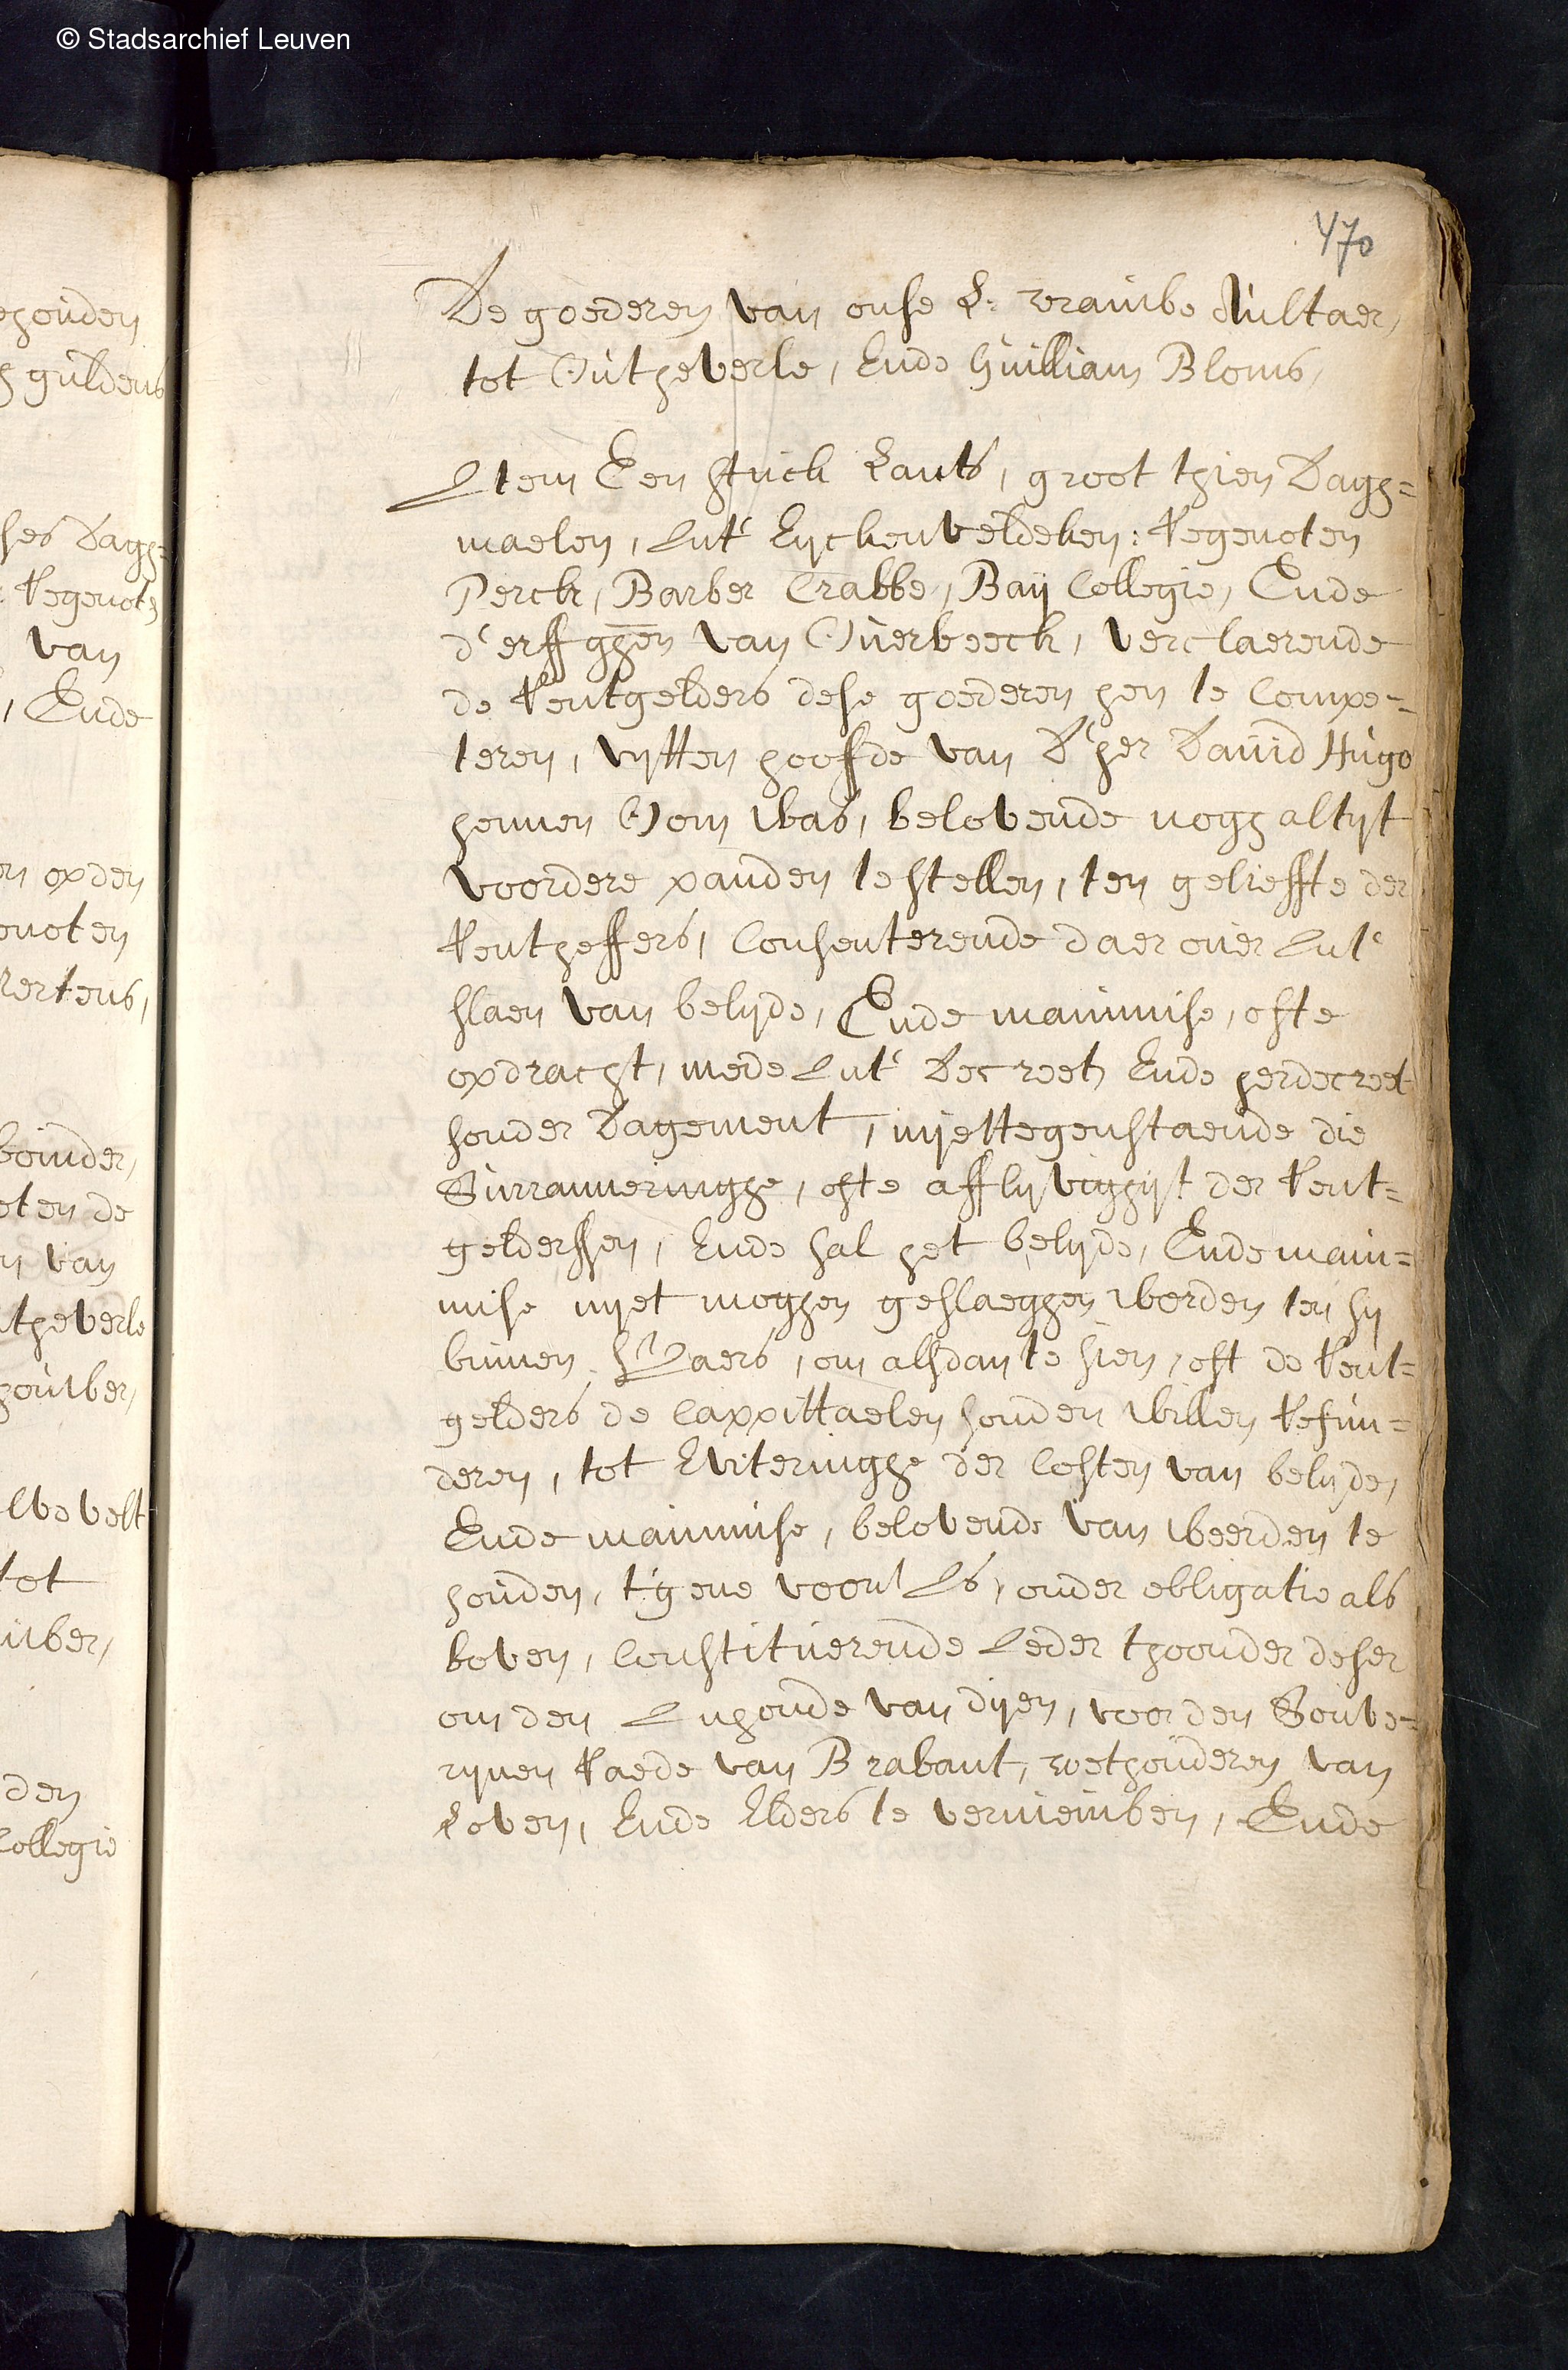 © Stadsarchief Leuven
470
De goederen van onse L: vrauwe Aultaer,
tot Outheverle, Ende Guilliam Bloms,
Item Een stuck Lants, groot thien Dagh=
maelen, int' Eyckenveldeken: Regenoten
Perck, Barber Crabbe, Baij Collegie, Ende
d'erffghen van Overbeeck, verclaerende
de Rentgelders dese goederen hen te Compe=
teren, vytten hoofde van D'her David Hugo
hennen Oom was, belovende nogh altyt
voordere panden te stellen, ten gelieffte der
Rentheffers, Consenterende daer over int'
slaen van belyde, Ende mainmise, ofte
opdracht, mede int' Decreet Ende herdecreet
sonder Dagement, nyettegenstaende die
Surranneringhe, ofte afflyvichhyt der Rent=
gelderssen, Ende sal het belyde, Ende main=
mise nyet moghen geslaeghen worden ten sy
binnen s' Jaers, om alsdan te sien, oft de Rent=
gelders de Cappittaelen souden willen Refun=
deren, tot Eviteringhe der Costen van belyde,
Ende mainmise, belovende van weerden te
houden, t'gene voors Is, onder obligatie als
boven, Constituerende Ieder thoonder deser
om den Inhoude van dyen, voor den Souve=
rynen Raede van Brabant, wethouderen van
Loven, Ende Elders te vernieuwen, Ende
ehouden
h guldens
ses Dagh=
: Regenoten
van
, Ende
en opden
enoten
Mertens,
eten de
en van
utheverle
tot
den
Collegie